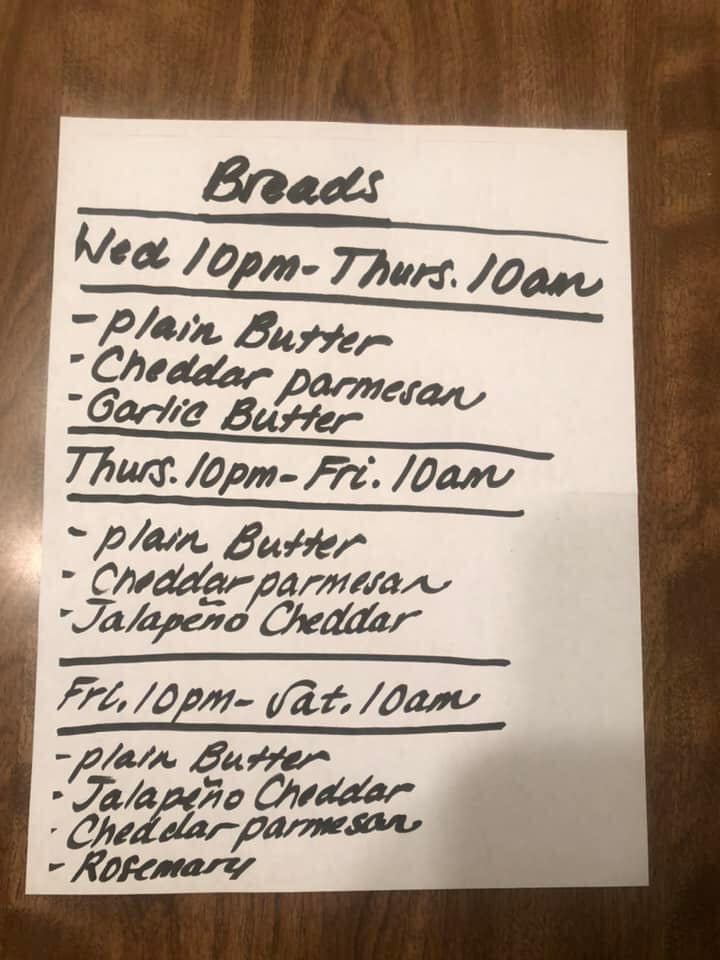 Breads
Wed 10pm- Thurs. 10am
- plain Butter
- Cheddar parmesan
- Garlic Butter
Thurs. 10pm- Fri. 10am
- plain Butter
- Cheddar parmesan
- Jalapeño Cheddar
Fri. 10pm- Sat. 10am
- plain Butter
- Jalapeño Cheddar
- Cheddar parmesan
- Rosemary